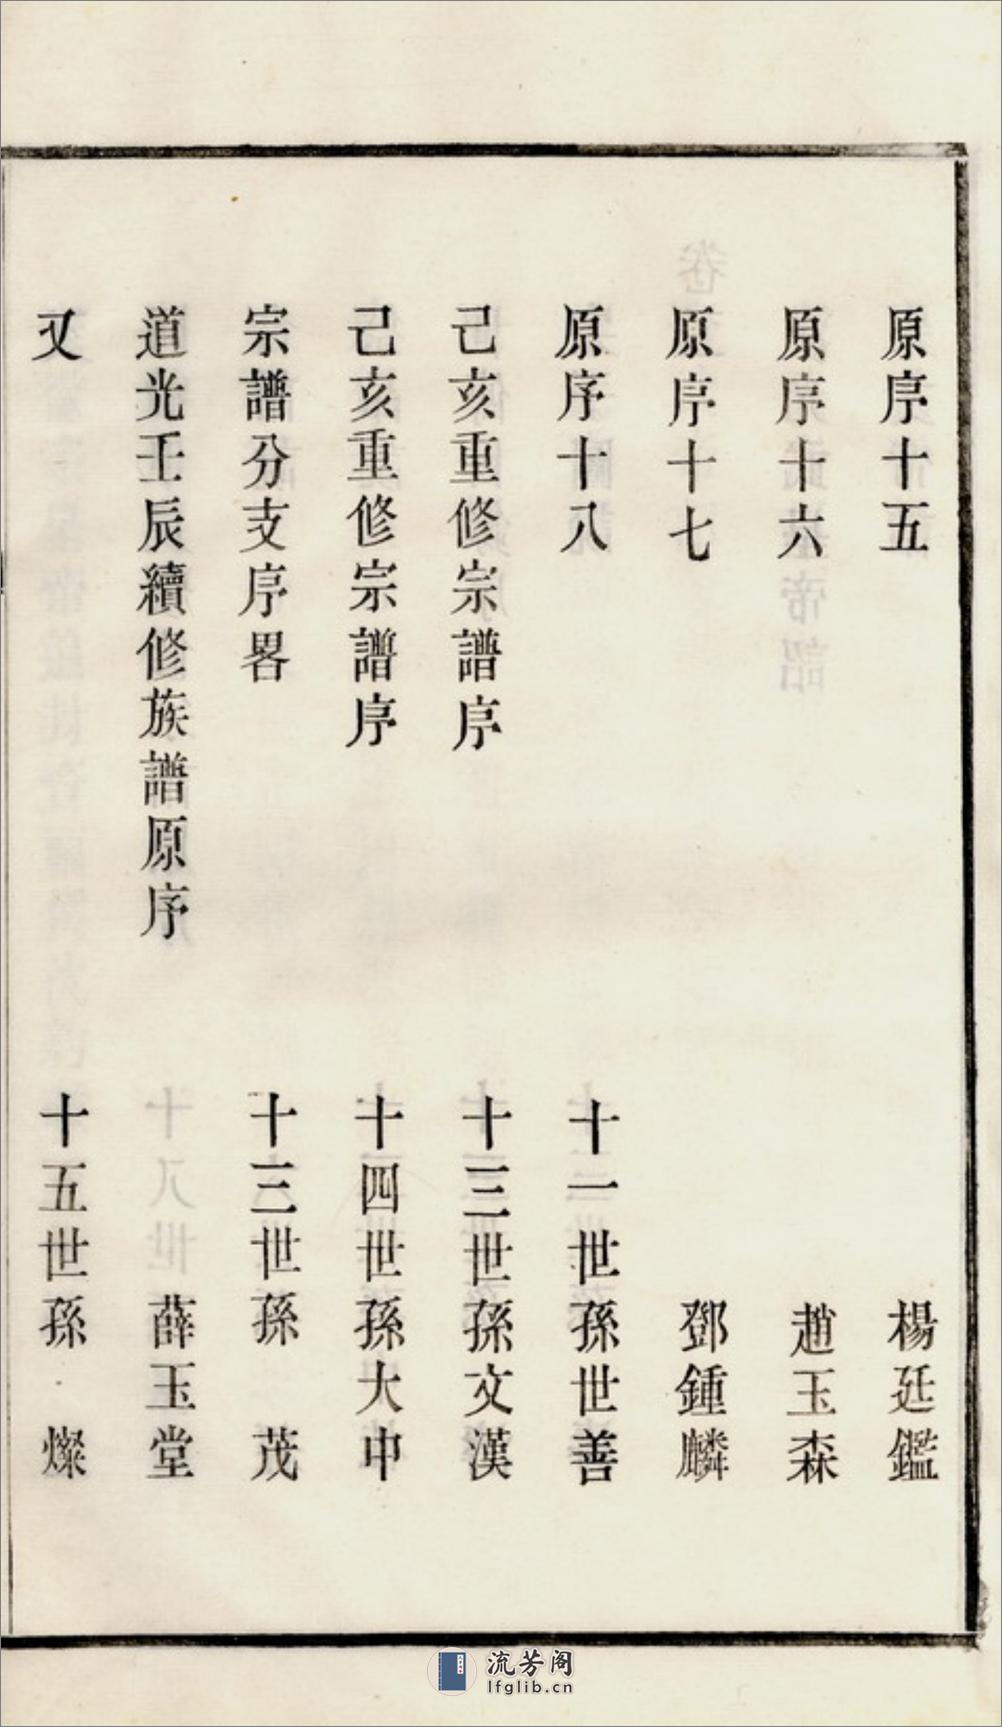 原序十五 楊廷鑑
原序十六 趙玉森
原序十七 鄧鍾麟
原序十八 十一世孫世善
己亥重修宗譜序 十三世孫文漢
己亥重修宗譜序 十四世孫大中
宗譜分支序畧 十三世孫 茂
道光壬辰續修族譜原序 薛玉堂
又 十五世孫 燦
流芳阁
lfglib.cn